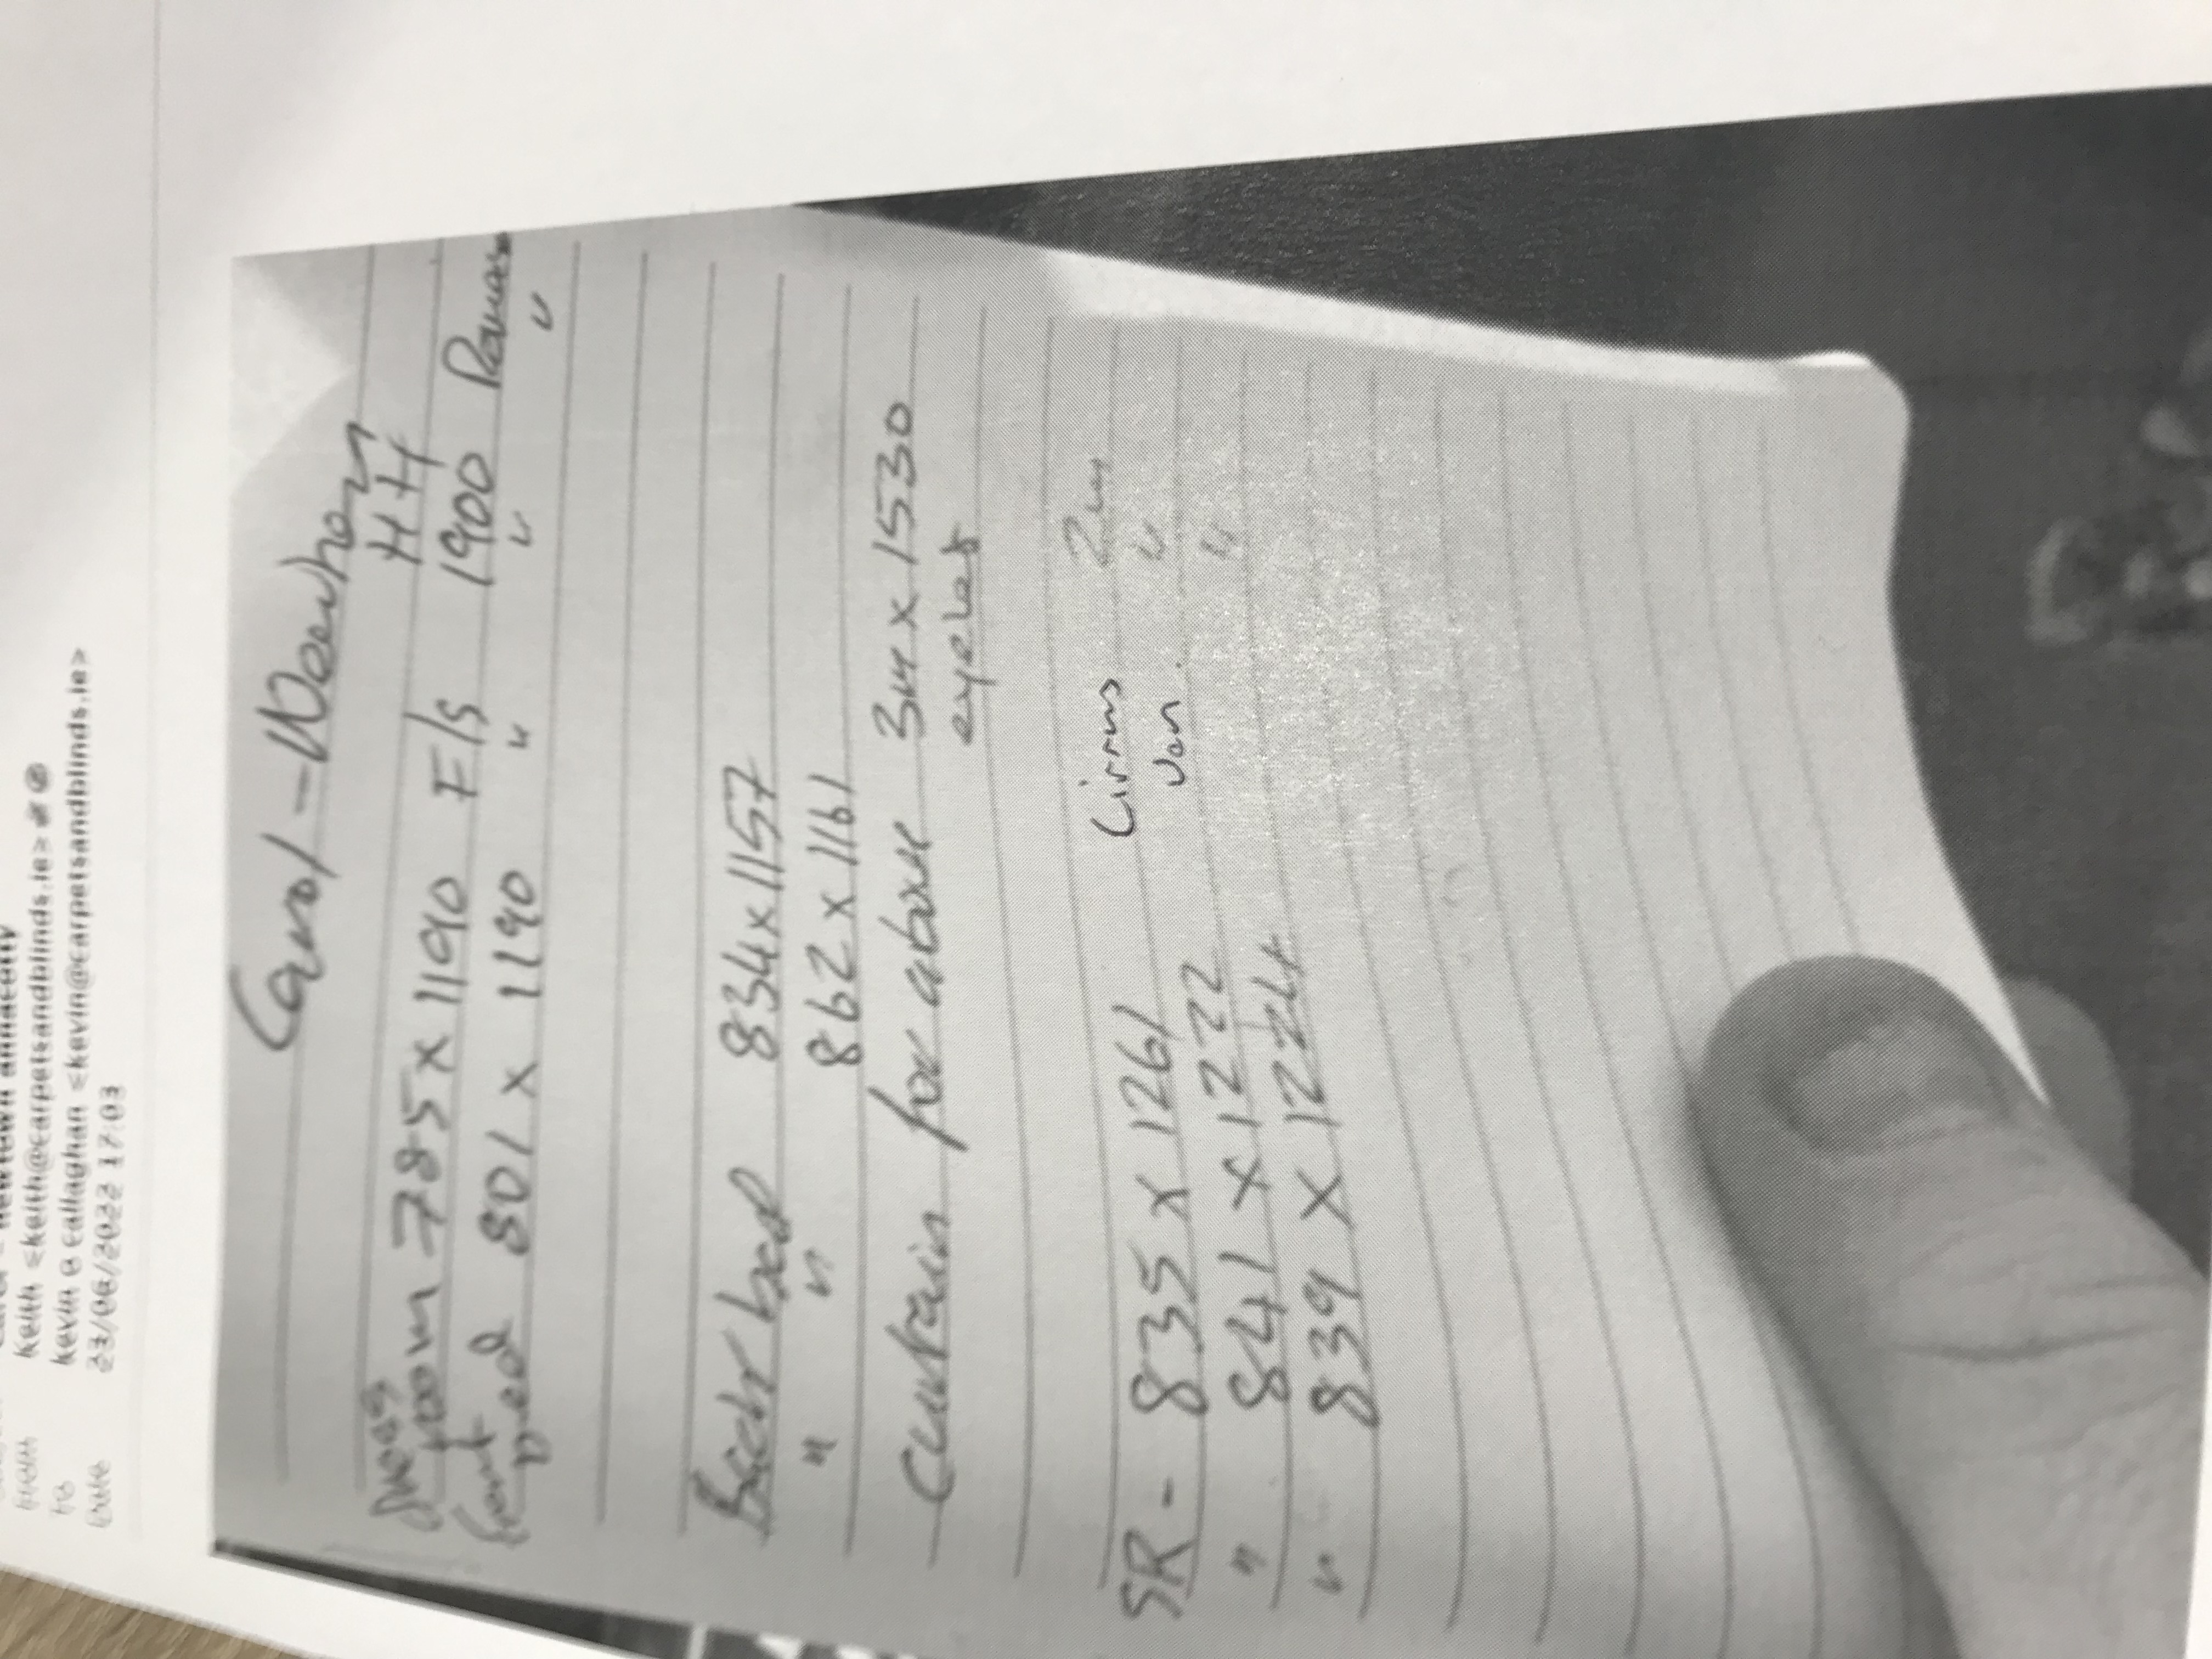 Keith <keith@carpetsandblinds.ie>
To kevin o callaghan <kevin@carpetsandblinds.ie>
Date 23/06/2022 17:03
Carol -
HH
room 785 x 1190 F/s 1900
front bed 801 x 1190 " " "
Back bed 834 x 1157
" " 862 x 1161
Curtain for above 3m x 1530
eyelet
SR - 835 x 1261 Cirrus 2m
" 841 x 1222 Van. "
" 839 x 1224 "